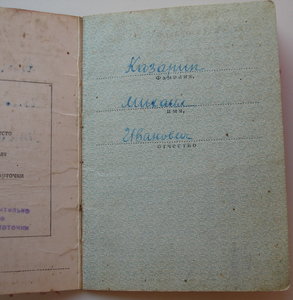 есто
рточки
ительно
рточки
Казарин
Фамилия,
Михаил
имя,
Иванович
отчество